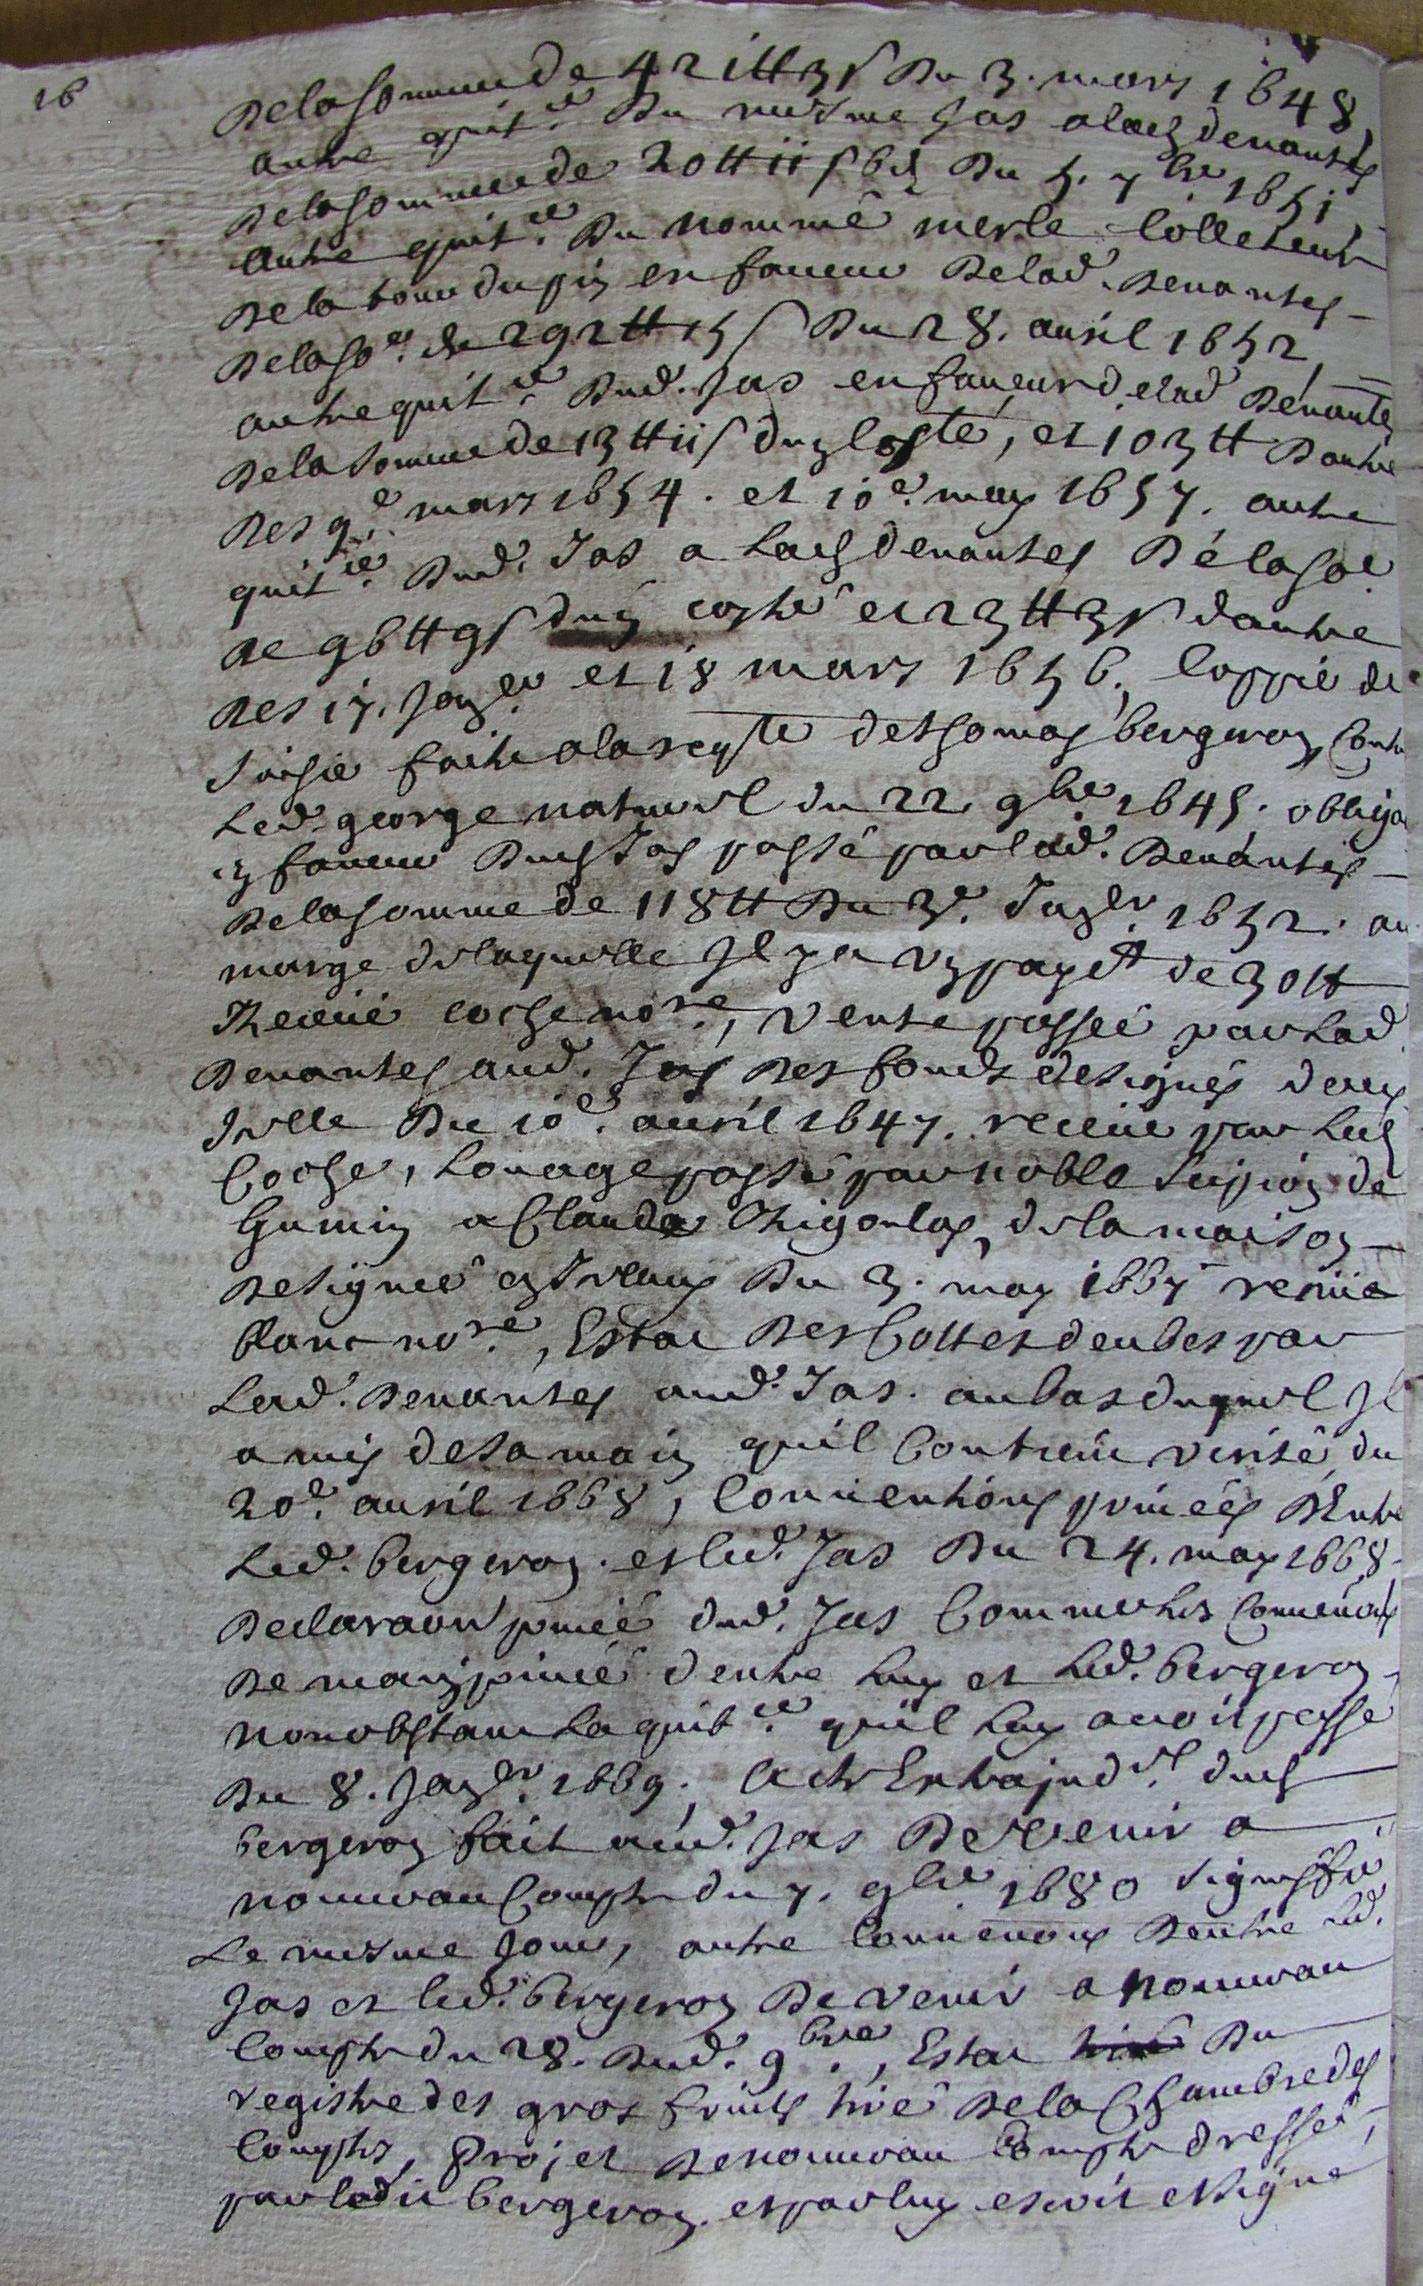 16
de la somme de 421 ₶ 3 s du 3. mars 1648,
autre quit.ce du mesme Jas a lad denantes
de la somme de 20 ₶ ii s 6 d du 5. 7bre 1651
autre quit.ce du nommé merle Collecteur
de la tour du pin en faueur de lad. denantes
de la so.e de 292 ₶ 15 s du 28. auril 1652,
autre quit.ce dud. Jas en faueur de lad denantes
de la somme de 13 ₶ ii s dun costé, et 103 ₶ dautre
des 9.e mars 1654. et 10.e may 1657. autre
quit.ce dud. Jas a lad denantes de la so.e
de 96 ₶ 9 s dun costé et 23 ₶ 3 s dautre
des 17. Jan.er et 18 mars 1656, Coppie de
saisie faite a la req.te de thomas bergeron Contre
led. george naturel du 22. 9bre 1645. obliga
en faueur dud Jas passé par lad. denantes
de la somme de 118 ₶ du 3.e Jan.er 1652. au
marge de laquelle Il y a un paye.t de 30 ₶
Receue coche no.re, vente passée par lad.
denantes aud. Jas des fonds designés dans
Icelle du 10.e auril 1647. receue par led
Coche, Louage passé par noble scipion de
Gumin a Claude Chigoulas, de la maison
designée en Iceluy du 3. may 1667 receue
blanc no.re, Estat des Cottes deubes par
lad. denantes aud. Jas. au bas duquel Il
a mis de sa main quil Contient verité du
20.e auril 1668, Conuentions priuées Entre
led. bergeron. et led. Jas du 24. may 1668
declaraon priuée dud. Jas Comme les Conuenons
de main priuée dentre luy et led. bergeron
nonobstant la quit.ce quil luy auoit passé
du 8. Jan.er 1669, acte Extrajud.el dud
bergeron fait aud. Jas de venir a
nouueau Compte du 7. 9bre 1680 signiffié
le mesme Jour, autre Conuenons dentre led.
Jas et led. bergeron de venir a nouueau
Compte du 28. dud. 9bre., Estat du
registre des gros fruits tiré de la Chambre des
Comptes, Projet de nouueau Compte dressé,
par ledit bergeron. et par luy escrit et signé